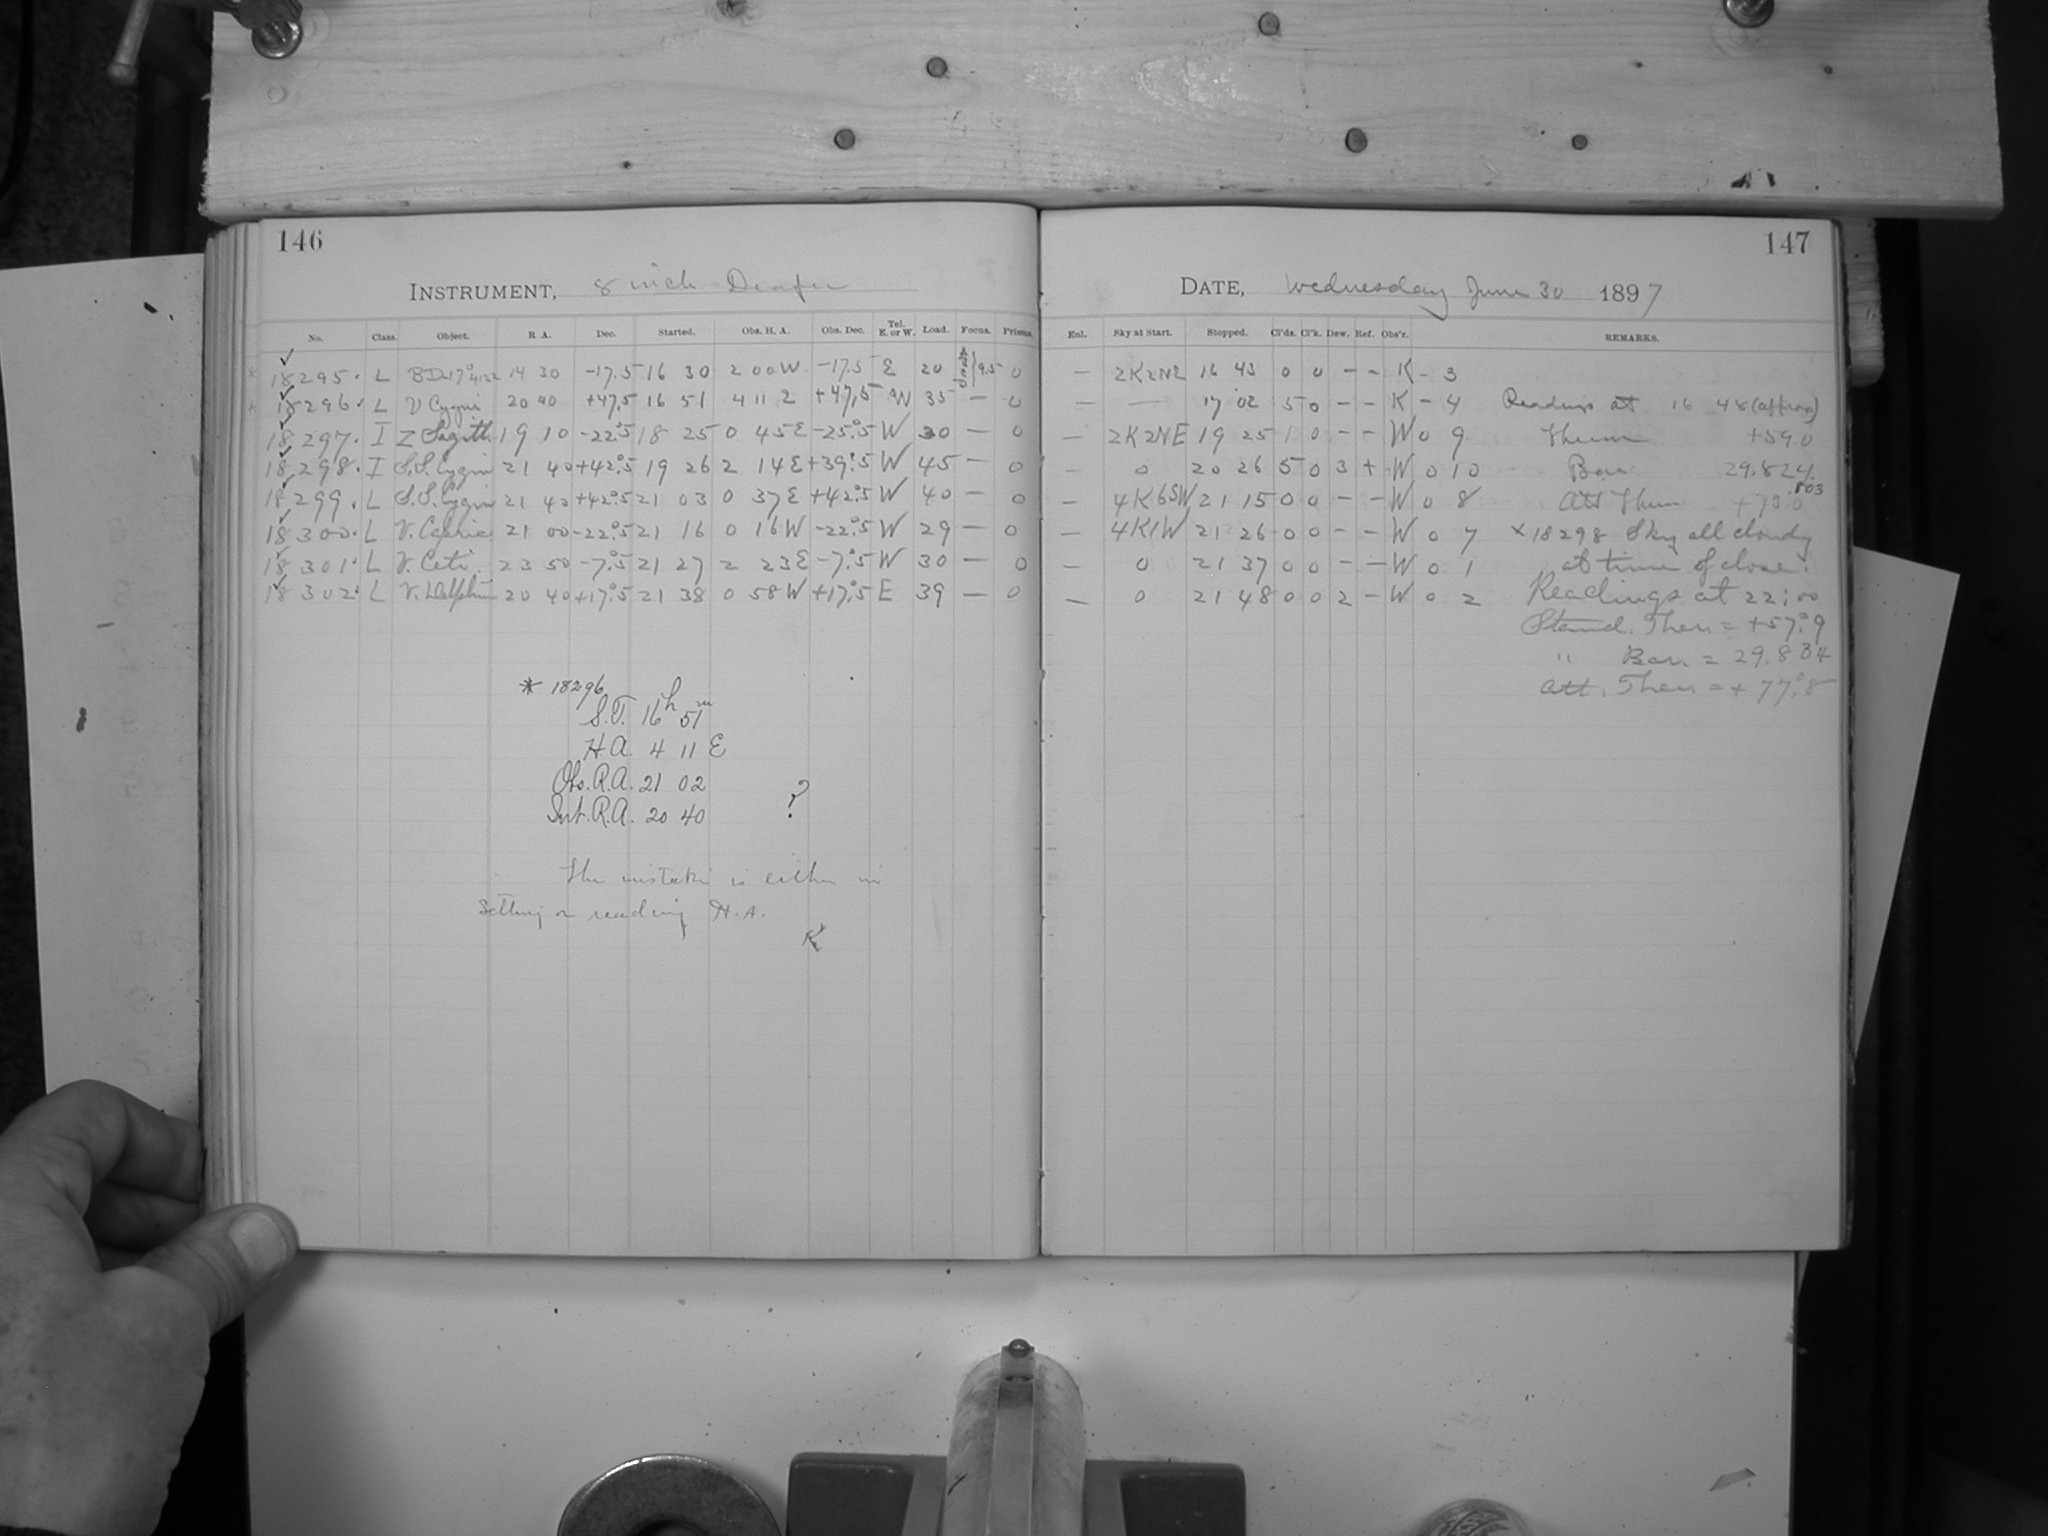 146
INSTRUMENT, 8 inch Draper
No. Class. Object. R. A. Dec. Started. Obs. H. A. Obs. Dec. Tel. E. or W. Load. Focus. Prisms.
* 18295. L BD-17°4132 14 30 -17.5 16 30 2 00 W -17.5 E 20 9.5 0
* 18296. L V Cygni 20 40 +47.5 16 51 4 11 2 +47.5 W 35 — 0
18297. I Z Sagitt. 19 10 -22°.5 18 25 0 45 E -25°.5 W 30 — 0
18298. I S.S. Cygni 21 40 +42°.5 19 26 2 14 E +39°.5 W 45 — 0
18299. L S.S. Cygni 21 40 +42°.5 21 03 0 37 E +42°.5 W 40 — 0
18300. L V. Capric 21 00 -22°.5 21 16 0 16 W -22°.5 W 29 — 0
18301. L V. Ceti. 23 50 -7°.5 21 27 2 23 E -7°.5 W 30 — 0
18302. L V. Delphin 20 40 +17°.5 21 38 0 58 W +17°.5 E 39 — 0
* 18296
S.T. 16h 51m
H.A. 4 11 E
Obs. R.A. 21 02
Int. R.A. 20 40 ?
The mistake is either in
setting or reading H.A.
147
DATE, Wednesday June 30 1897
Enl. Sky at Start. Stopped. Cl'ds. Cl'k. Dew. Ref. Obs'r. REMARKS.
— 2K2NE 16 43 0 0 - - K - 3
— — 17 02 5 0 - - K - 4 Readings at 16 48 (approx)
— 2K2NE 19 25 1 0 - - W 0 9 Therm +59.0
— 0 20 26 5 0 3 + W 0 10 Bar 29.824
.803
— 4K6SW 21 15 0 0 - - W 0 8 Att Therm +73.0
— 4K1W 21 26 0 0 - - W 0 7 × 18298 Sky all cloudy
— 0 21 37 0 0 - - W 0 1 at time of close.
— 0 21 48 0 0 2 - W 0 2 Readings at 22:00
Stand. Ther. = +57°.9
" Bar. = 29.834
Att. Ther. = +77°.8